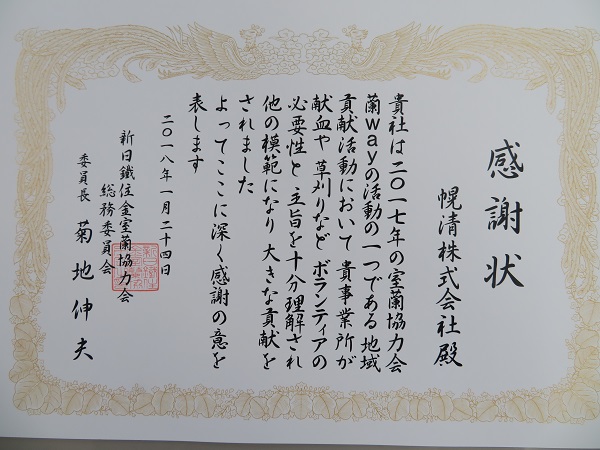 感謝状
幌清株式会社殿
貴社は二〇一七年の室蘭協力会
蘭wayの活動の一つである地域
貢献活動において貴事業所が
献血や 草刈りなど ボランティアの
必要性と 主旨を十分理解され
他の模範になり 大きな貢献を
されました
よってここに深く感謝の意を
表します
二〇一八年一月二十四日
新日鐵住金室蘭協力会
総務委員会
委員長 菊地伸夫